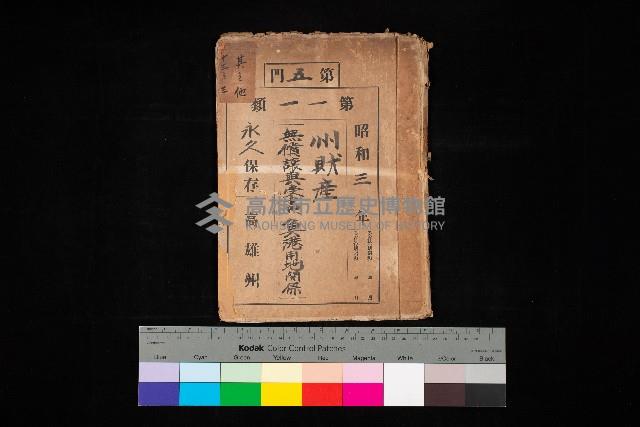 第五門
第一一類
昭和三年
州財産
無償譲與
漁港用地関係
永久保存
高雄州
其之他
高雄市立歷史博物館
KAOHSIUNG MUSEUM OF HISTORY
Kodak Color Control Patches
Blue Cyan Green Yellow Red Magenta White 3/Color Black